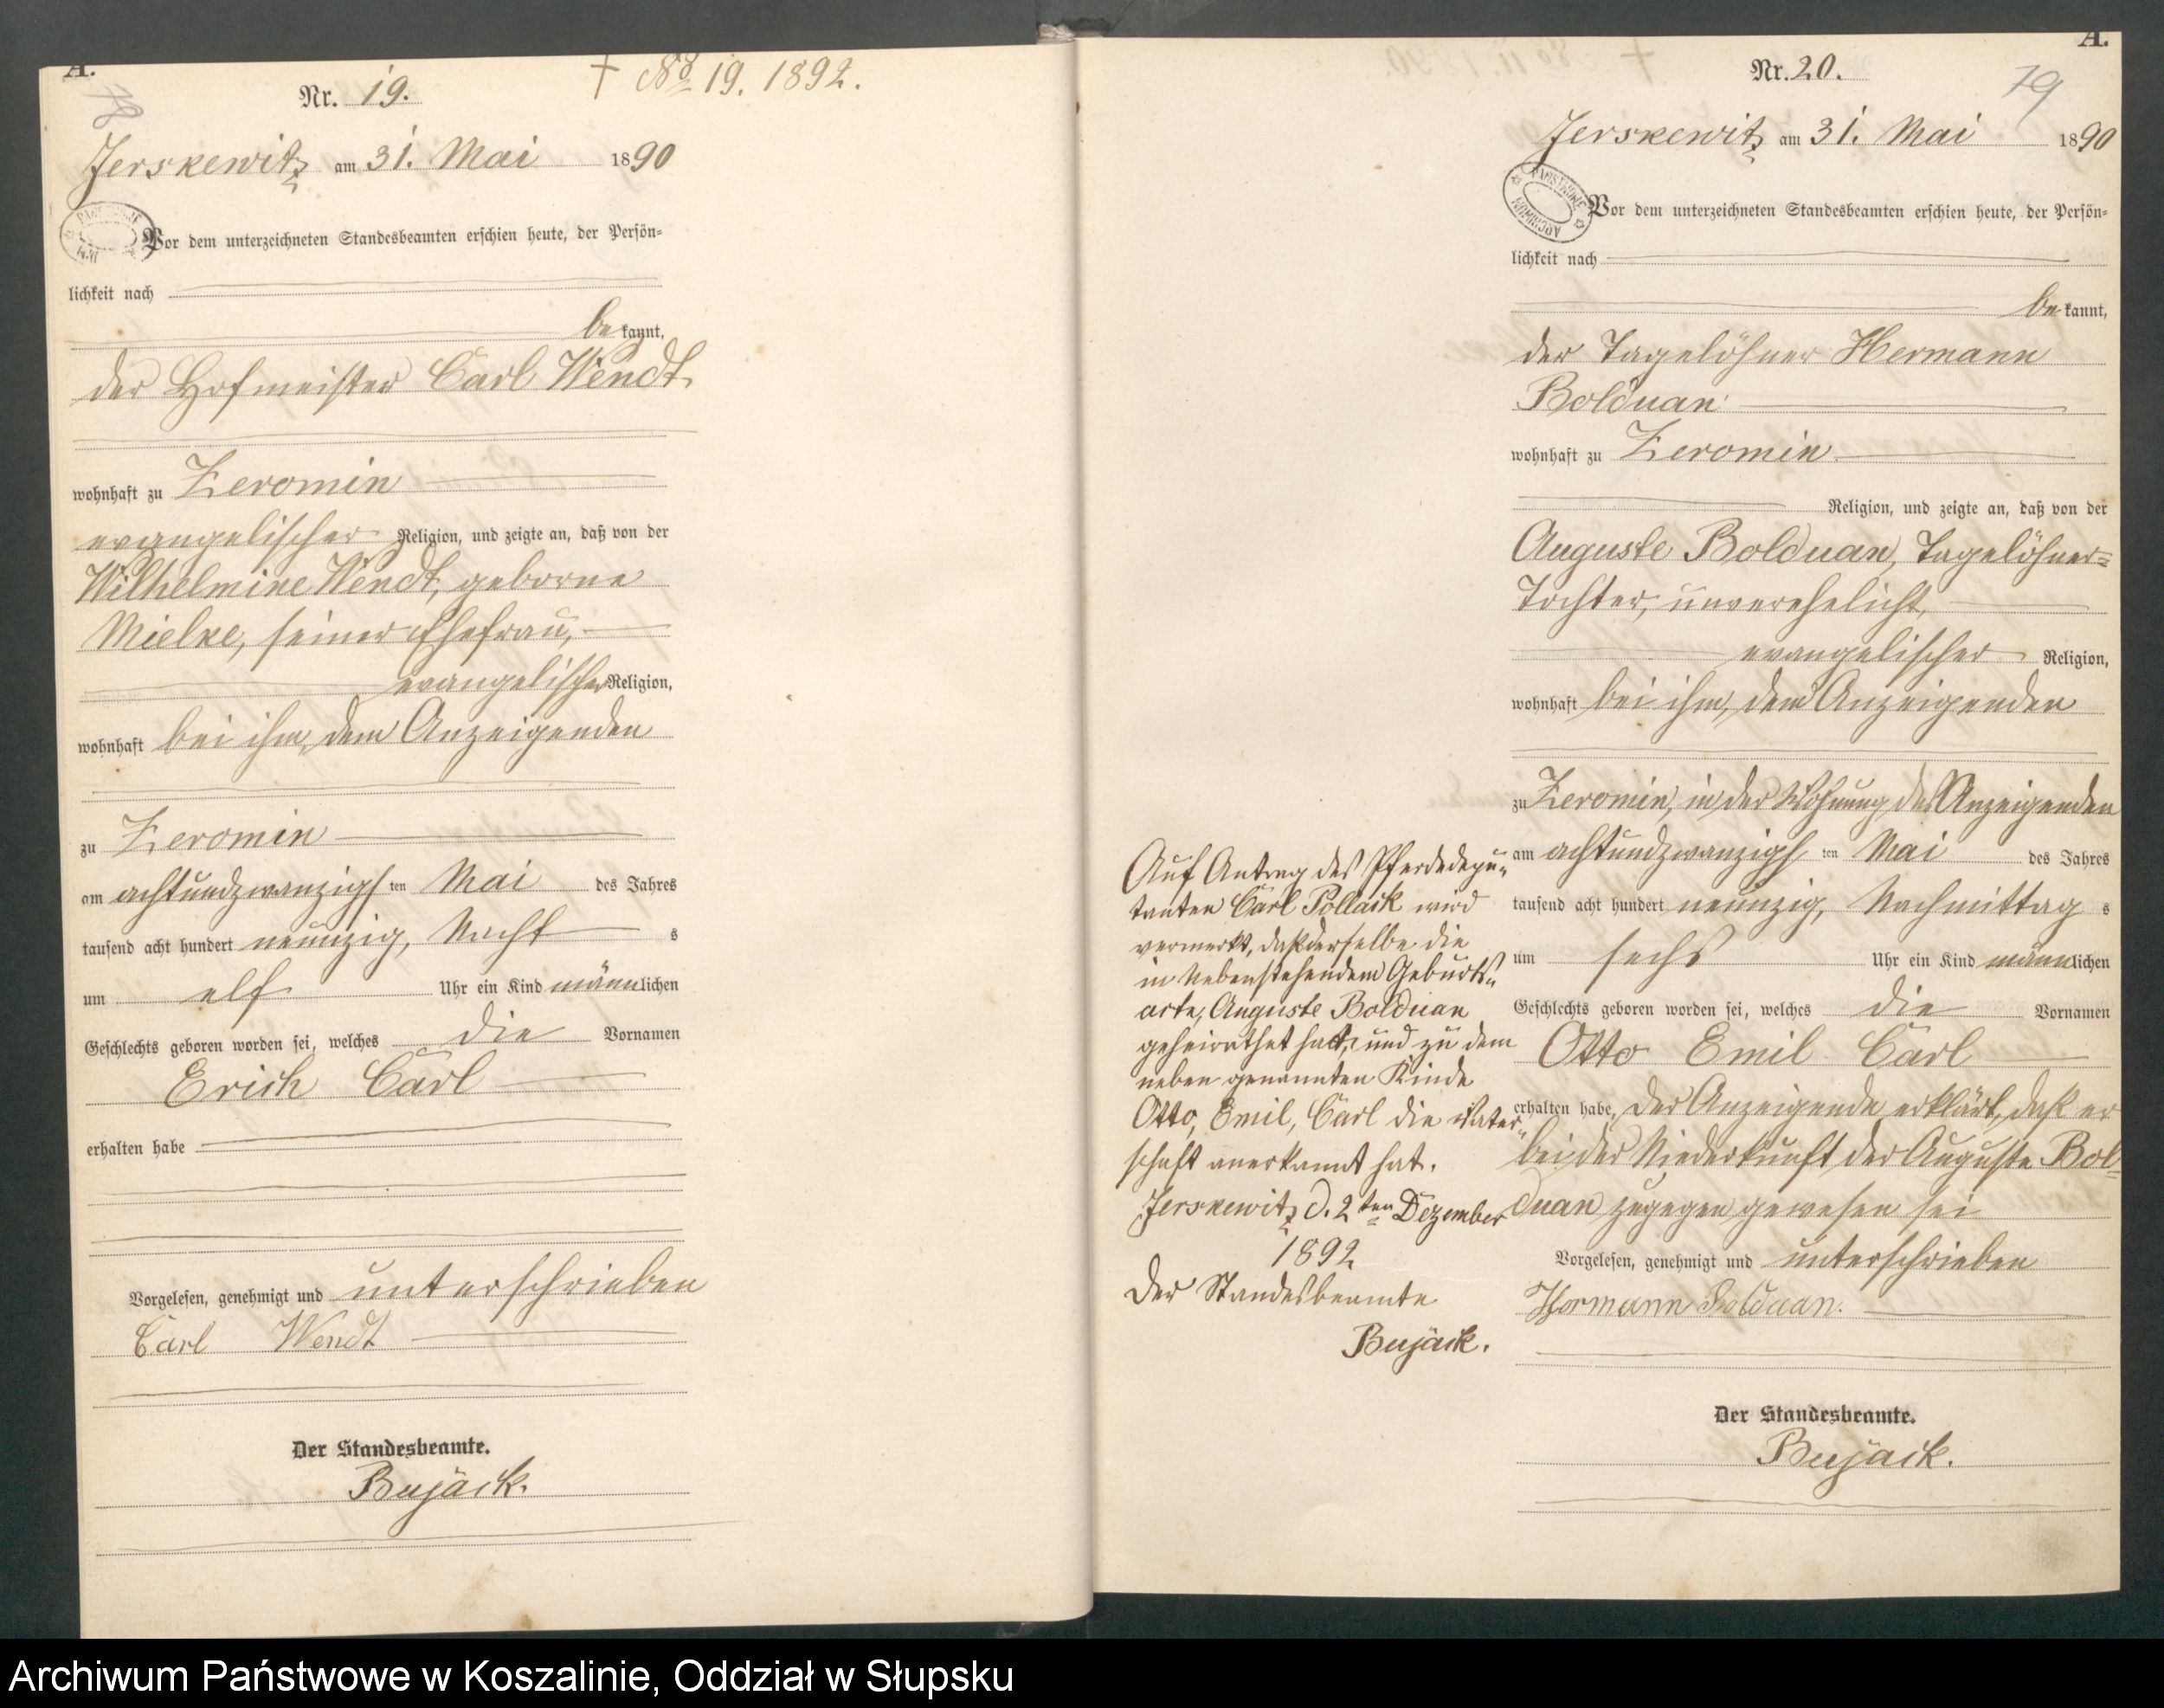 A.
78
Nr. 19.
† No 19. 1892.
Jerskewitz am 31. Mai 1890
Vor dem unterzeichneten Standesbeamten erschien heute, der Persön-
lichkeit nach
be kannt,
der Hofmeister Carl Wendt,
wohnhaft zu Zeromin
evangelischer Religion, und zeigte an, daß von der
Wilhelmine Wendt, geborne
Mielke, seiner Ehefrau,
evangelischer Religion,
wohnhaft bei ihm, dem Anzeigenden
zu Zeromin
am achtundzwanzigsten Mai des Jahres
tausend acht hundert neunzig, Nacht s
um elf Uhr ein Kind männlichen
Geschlechts geboren worden sei, welches die Vornamen
Erich Carl
erhalten habe
Vorgelesen, genehmigt und unterschrieben
Carl Wendt
Der Standesbeamte.
Bujack.
A.
Nr. 20.
79
Jerskewitz am 31. Mai 1890
Vor dem unterzeichneten Standesbeamten erschien heute, der Persön-
lichkeit nach
be kannt,
der Tagelöhner Hermann
Bolduan
wohnhaft zu Zeromin
Religion, und zeigte an, daß von der
Auguste Bolduan, Tagelöhner-
Tochter, unverehelicht,
evangelischer Religion,
wohnhaft bei ihm, dem Anzeigenden
zu Zeromin, in der Wohnung des Anzeigenden
am achtundzwanzigsten Mai des Jahres
tausend acht hundert neunzig, Nachmittag s
um sechs Uhr ein Kind männlichen
Geschlechts geboren worden sei, welches die Vornamen
Otto Emil Carl
erhalten habe, der Anzeigende erklärt, daß er
bei der Niederkunft der Auguste Bol-
duan zugegen gewesen sei
Vorgelesen, genehmigt und unterschrieben
Hermann Bolduan.
Der Standesbeamte.
Bujack.
Auf Antrag des Pferdedepu-
tanten Carl Pollack wird
vermerkt, daß derselbe die
in nebenstehendem Geburts-
akte, Auguste Bolduan
geheirathet hat, und zu dem
neben genannten Kinde
Otto, Emil, Carl die Vater-
schaft anerkannt hat.
Jerskewitz d. 2ten Dezember
1892
Der Standesbeamte
Bujack.
Archiwum Państwowe w Koszalinie, Oddział w Słupsku